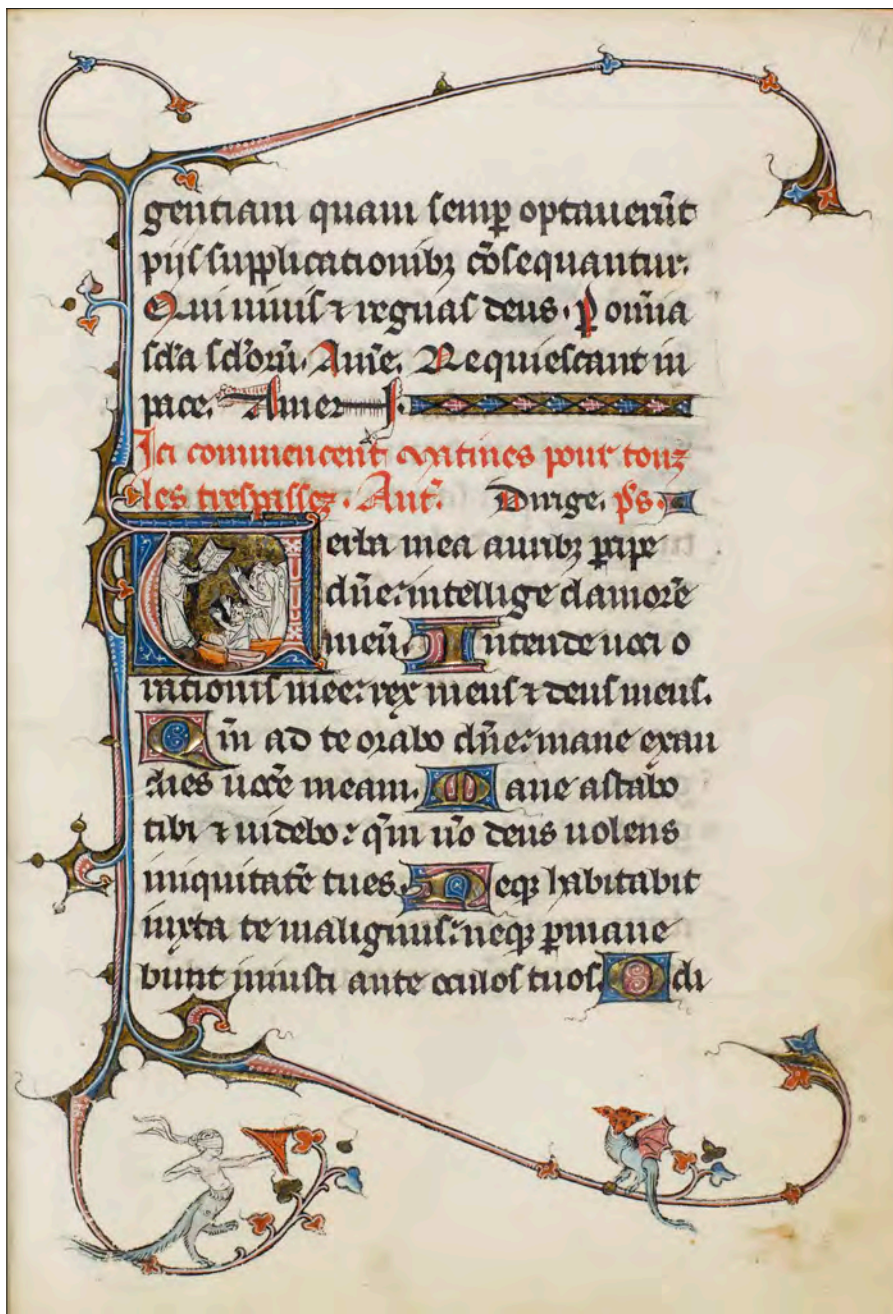 gentiam quam semꝑ optauerūt
pijs supplicationibꝫ cōsequantur.
Qui uiuis ⁊ regnas deus. P om̄ia
scła scłor̄. Amē. Requiescant in
pace. Amen
Ici commencent matines pour touz
les trespassez. Ant̄. Dirige. p̄s.
Uerba mea auribꝫ ꝑcipe
dn̄e: intellige clamorē
meū. Intende uoci o
rationis mee: rex meus ⁊ deus meus.
Qm̄ ad te orabo dn̄e: mane exau
dies uocē meam. Mane astabo
tibi ⁊ uidebo: qm̄ nō deus uolens
iniquitatē tu es. Neqꝫ habitabit
iuxta te malignus: neqꝫ ꝑmane
bunt iniusti ante oculos tuos. Odi